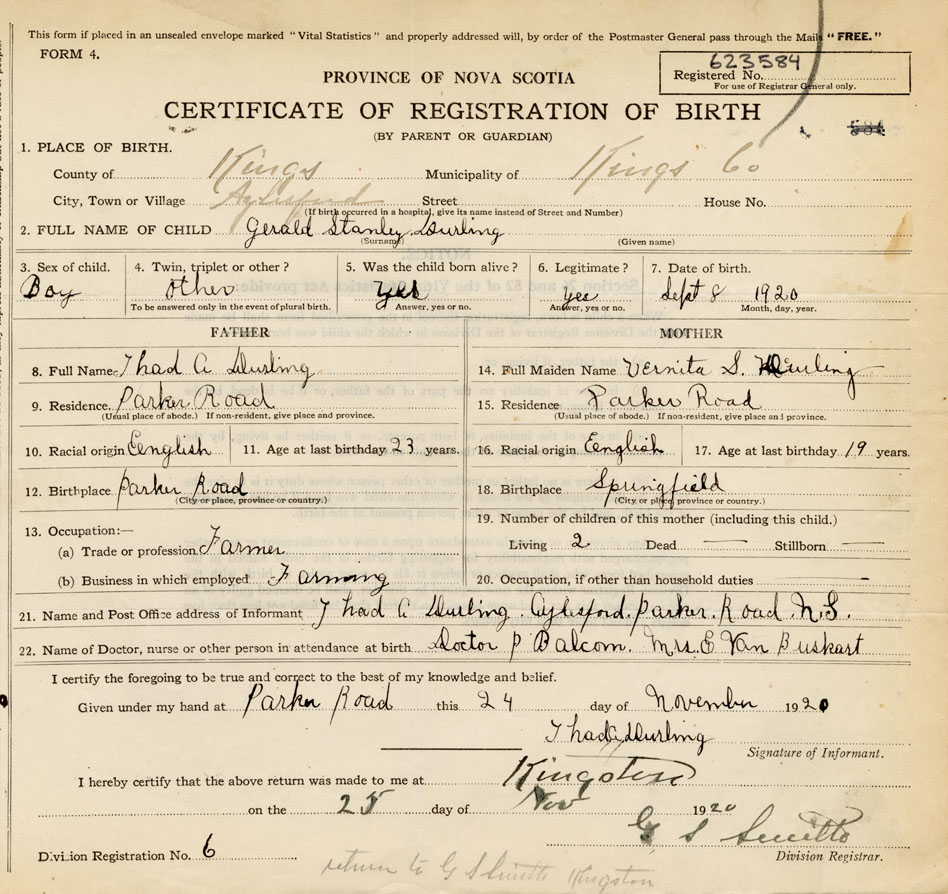 This form if placed in an unsealed envelope marked "Vital Statistics" and properly addressed will, by order of the Postmaster General pass through the Mails "FREE."
FORM 4.
623584
Registered No.
For use of Registrar General only.
PROVINCE OF NOVA SCOTIA
CERTIFICATE OF REGISTRATION OF BIRTH
(BY PARENT OR GUARDIAN)
1. PLACE OF BIRTH.
County of Kings Municipality of Kings Co
City, Town or Village Aylesford Street House No.
(If birth occurred in a hospital, give its name instead of Street and Number)
2. FULL NAME OF CHILD Gerald Stanley Durling
(Surname) (Given name)
3. Sex of child. 4. Twin, triplet or other? 5. Was the child born alive? 6. Legitimate? 7. Date of birth.
Boy other yes yes Sept 8 1920
To be answered only in the event of plural birth. Answer, yes or no. Answer, yes or no. Month, day, year.
FATHER MOTHER
8. Full Name Thad A Durling 14. Full Maiden Name Vernita S. Durling
9. Residence Parker Road 15. Residence Parker Road
(Usual place of abode.) If non-resident, give place and province. (Usual place of abode.) If non-resident, give place and province.
10. Racial origin English 11. Age at last birthday 23 years. 16. Racial origin English 17. Age at last birthday 19 years.
12. Birthplace Parker Road 18. Birthplace Springfield
(City or place, province or country.) (City or place, province or country.)
13. Occupation:— 19. Number of children of this mother (including this child.)
(a) Trade or profession Farmer Living 2 Dead — Stillborn —
(b) Business in which employed Farming 20. Occupation, if other than household duties —
21. Name and Post Office address of Informant Thad A Durling. Aylesford. Parker. Road. N.S.
22. Name of Doctor, nurse or other person in attendance at birth Doctor P Balcom. Mrs. E Van Buskart
I certify the foregoing to be true and correct to the best of my knowledge and belief.
Given under my hand at Parker Road this 24 day of November 1920
Thad A Durling
Signature of Informant.
I hereby certify that the above return was made to me at Kingston
on the 25 day of Nov 1920
G S Smith
Division Registrar.
Division Registration No. 6
return to G S Smith Kingston